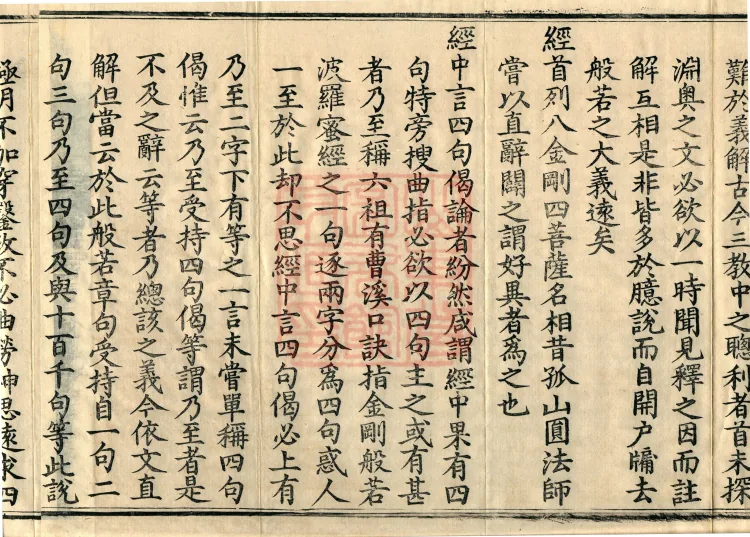 難於義解古今三教中之聰利者首未探
淵奧之文必欲以一時聞見釋之因而註
解互相是非皆多於臆說而自開户牖去
般若之大義遠矣
經首列八金剛四菩薩名相昔孤山圓法師
嘗以直辭闢之謂好異者為之也
經中言四句偈論者紛然咸謂經中果有四
句特旁搜曲指必欲以四句主之或有甚
者乃至稱六祖有曹溪口訣指金剛般若
波羅蜜經之一句逐兩字分為四句惑人
一至於此却不思經中言四句偈必上有
乃至二字下有等之一言未嘗單稱四句
偈惟云乃至受持四句偈等謂乃至者是
不及之辭云等者乃總該之義今依文直
解但當云於此般若章句受持自一句二
句三句乃至四句及與十百千句等此說
極明不加穿鑿故不必曲勞神思遠求四